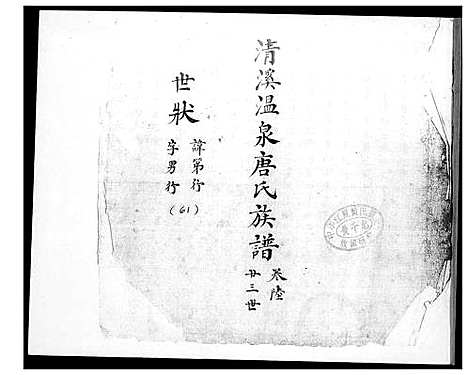 清溪溫泉唐氏族譜
卷陸
廿三世
世狀
諱第行
字男行
(61)